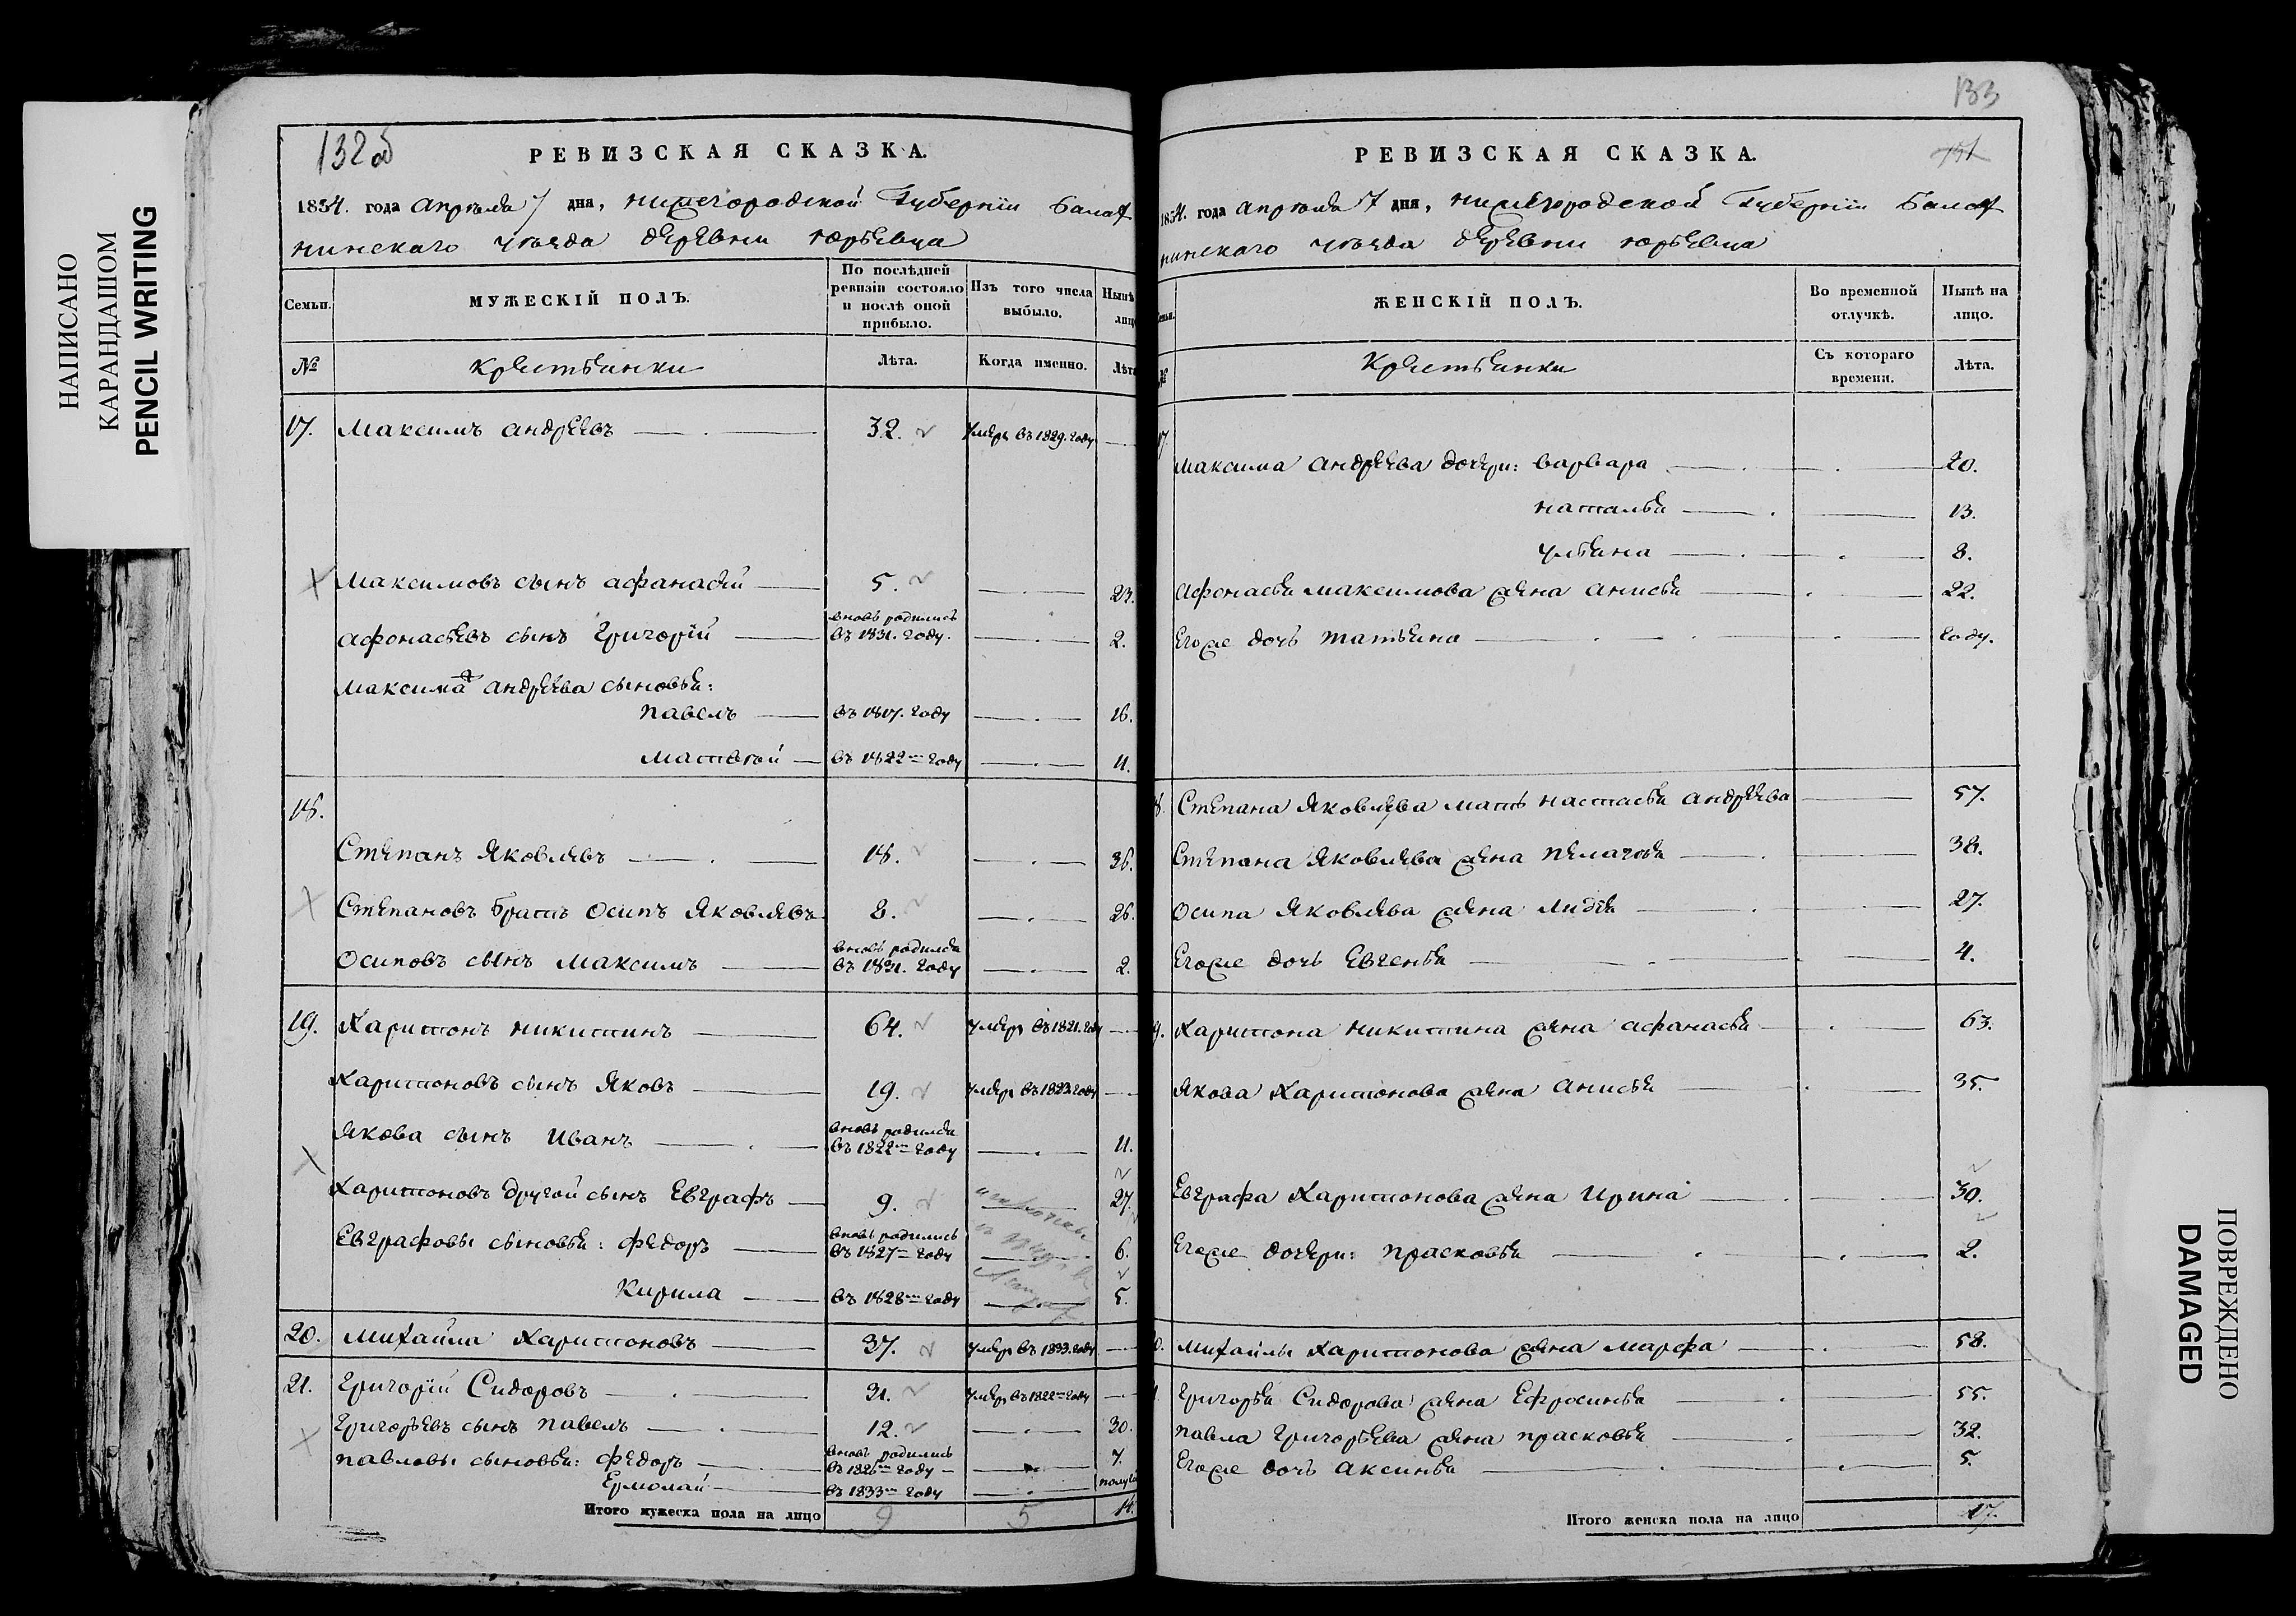 НАПИСАНО
КАРАНДАШОМ
PENCIL WRITING
132об
РЕВИЗСКАЯ СКАЗКА.
1834. года апрѣля 7 дня, нижегородской Губерніи Балах
нинскаго уѣзда деревни юрьевца
Семьи.
МУЖЕСКІЙ ПОЛЪ.
По послѣдней ревизіи состояло и послѣ оной прибыло.
Изъ того числа выбыло.
Нынѣ лицо
№
крестьянки
Лѣта.
Когда именно.
Лѣта
17. Максимъ андреевъ 32. умеръ въ 1829. году
Максимовъ сынъ афанасій 5. 23.
афонасьевъ сынъ григорій вновь родились въ 1831. году. 2.
Максима андреева сыновья:
павелъ въ 1817. году 16.
матвѣй въ 1822 году 11.
18.
Степанъ Яковлевъ 18. 36.
Степановъ братъ Осипъ Яковлевъ 8. 26.
Осиповъ сынъ максимъ вновь родился въ 1831. году 2.
19. Харитонъ никитинъ 64. умеръ въ 1821. году
Харитоновъ сынъ Яковъ 19. умеръ въ 1823 году
Якова сынъ Иванъ вновь родился въ 1822 году 11.
Харитоновъ другой сынъ Евграфъ 9. 27.
Евграфовы сыновья: федоръ вновь родились въ 1827 году 6.
Кирила въ 1828 году 5.
20. михайла харитоновъ 37. умеръ въ 1833. году
21. григорій Сидоровъ 31. умеръ въ 1822 году
григорьевъ сынъ павелъ 12. 30.
павловы сыновья: федоръ вновь родились въ 1826 году 7.
Ермолай въ 1833 году
Итого мужеска пола на лицо 9 5 14.
133
РЕВИЗСКАЯ СКАЗКА.
1834. года апрѣля 7 дня, нижегородской Губерніи Балах
нинскаго уѣзда деревни юрьевца
ЖЕНСКІЙ ПОЛЪ.
Во временной отлучкѣ.
Нынѣ на лицо.
№
крестьянки
Съ котораго времени.
Лѣта.
17
максима андреева дочери: варвара 20.
наталья 13.
ульяна 8.
афонасья максимова жена анисья 22.
Егоже дочь татьяна году.
Степана Яковлева мать настасья андреева 57.
Степана Яковлева жена пелагѣя 38.
осипа Яковлева жена лидія 27.
Егоже дочь Евгенья 4.
9. харитона никитина жена афанасья 63.
якова харитонова жена анисья 35.
Евграфа харитонова жена Ирина 30.
Егоже дочери: прасковья 2.
михайлы харитонова жена марфа 58.
григорья Сидорова жена Ефросинья 55.
павла григорьева жена прасковья 32.
Егоже дочь аксинья 5.
Итого женска пола на лицо 17.
ПОВРЕЖДЕНО
DAMAGED